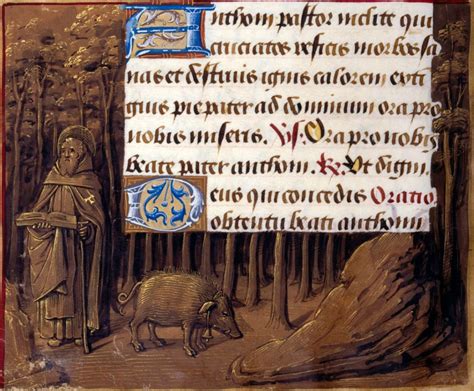 Anthoni pastor inclite qui
cruciatos reficis morbos sa
nas et destruis ignis calorem exti
guis pie pater ad dominum ora pro
nobis miseris. Vs. Ora pro nobis
beate pater anthoni. Re. Ut digni
Deus qui concedis Oratio
obtentu beati anthonii